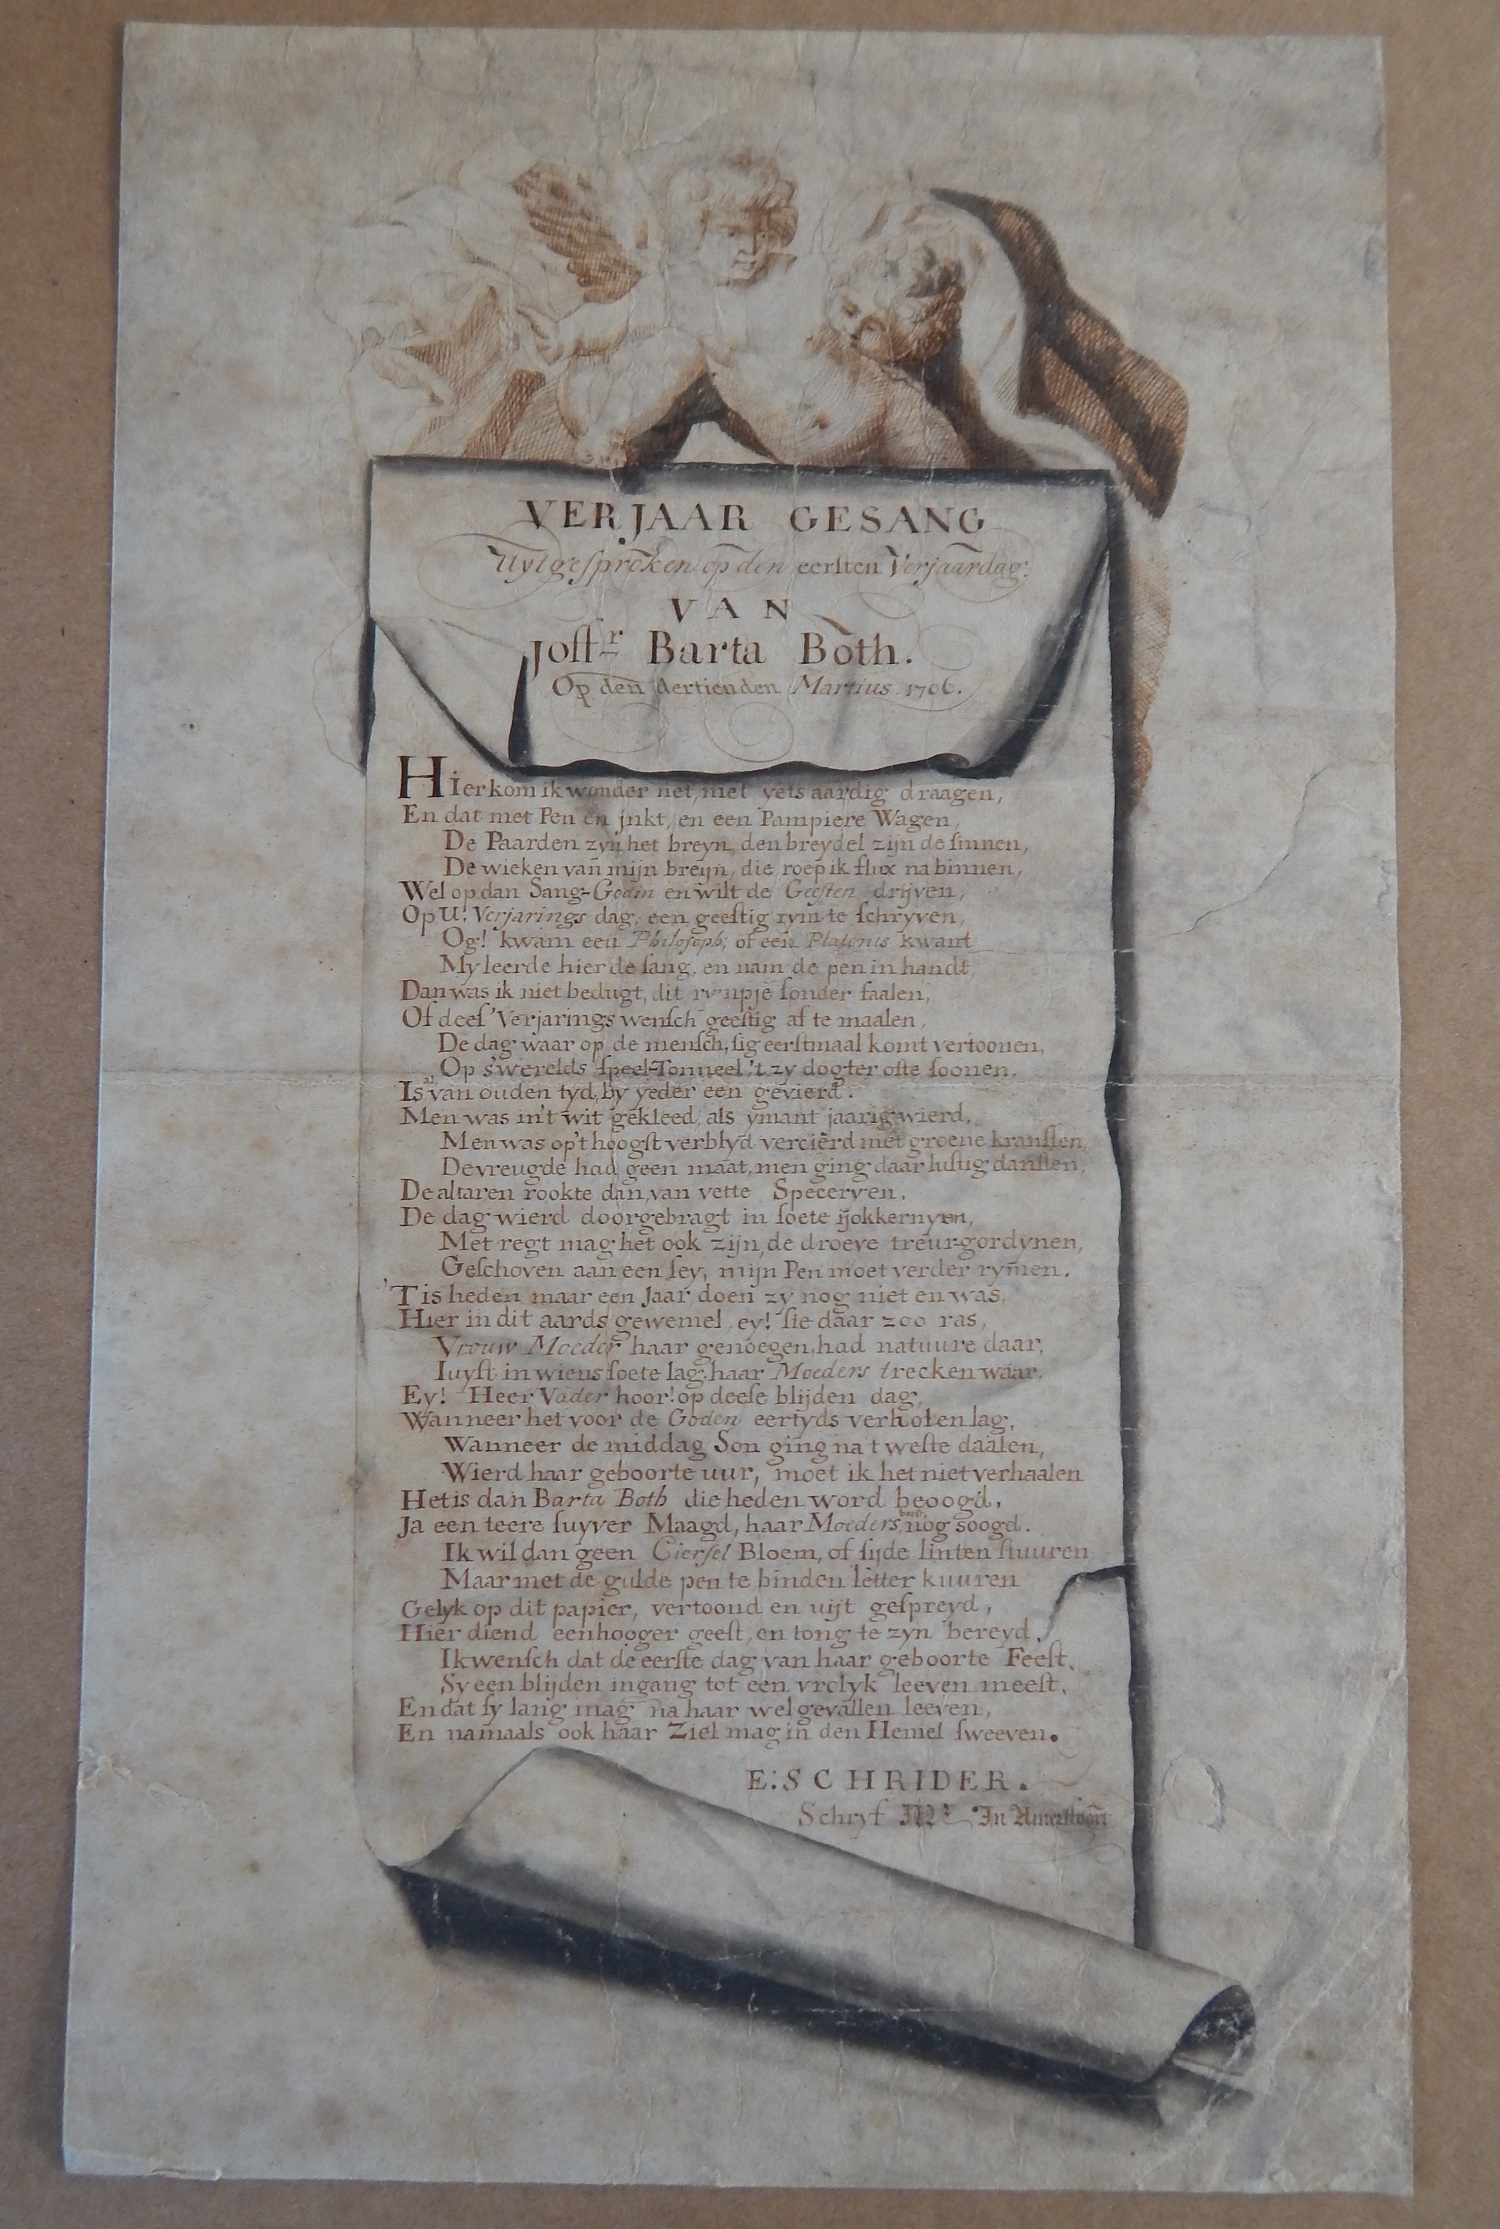 VERJAAR GESANG
Uytgesproken op den eersten Verjaardag.
VAN
Joffr Barta Both.
Op den dertienden Martius. 1706.
Hier kom ik wonder net, met yets aardig draagen,
En dat met Pen en jnkt, en een Pampiere Wagen,
De Paarden zyn het breyn, den breydel zijn de sinnen,
De wieken van mijn breijn, die roep ik flux na binnen,
Wel op dan Sang-Godin en wilt de Geesten drijven,
Op U! Verjarings dag, een geestig rym te schryven,
Og! kwam een Philosoph, of een Platonis kwant
My leerde hier de sang, en nam de pen in handt,
Dan was ik niet bedugt, dit rympje sonder faalen,
Of dees Verjarings wensch geestig af te maalen,
De dag waar op de mensch, sig eerstmaal komt vertoonen,
Op swerelds speel-Tonneel 't zy dogter ofte soonen.
Is al van ouden tyd, by yeder een gevierd.
Men was in't wit gekleed, als ymant jaarig wierd,
Men was op't hoogst verblyd vercierd met groene kranssen,
De vreugde had geen maat, men ging daar lustig danssen,
De altaren rookte dan, van vette Speceryen,
De dag wierd doorgebragt in soete ijokkernyen,
Met regt mag het ook zijn, de droeve treurgordynen,
Geschoven aan een sey, mijn Pen moet verder rymen.
'Tis heden maar een Jaar, doen zy nog niet en was,
Hier in dit aards gewemel, ey! sie daar zoo ras,
Vrouw Moeder haar genoegen, had natuure daar,
Iuyst in wiens soete lag, haar Moeders trecken waar,
Ey! Heer Vader hoor! op deese blijden dag,
Wanneer het voor de Goden eertyds verholen lag,
Wanneer de middag Son ging na t weste daalen,
Wierd haar geboorte uur, moet ik het niet verhaalen
Het is dan Barta Both die heden word beoogd,
Ja een teere suyver Maagd, haar Moeders nog soogd.
Ik wil dan geen Ciersel Bloem, of sijde linten stuuren
Maar met de gulde pen te binden letter kuuren
Gelyk op dit papier, vertoond en uijt gespreyd,
Hier diend een hooger geest, en tong te zyn bereyd,
Ik wensch dat de eerste dag van haar geboorte Feest,
Sy een blijden ingang tot een vrolyk leeven meest,
En dat sy lang mag na haar wel gevallen leeven,
En namaals ook haar Ziel mag in den Hemel sweeven.
E: SCHRIDER.
Schryf Mr In Amersfoort